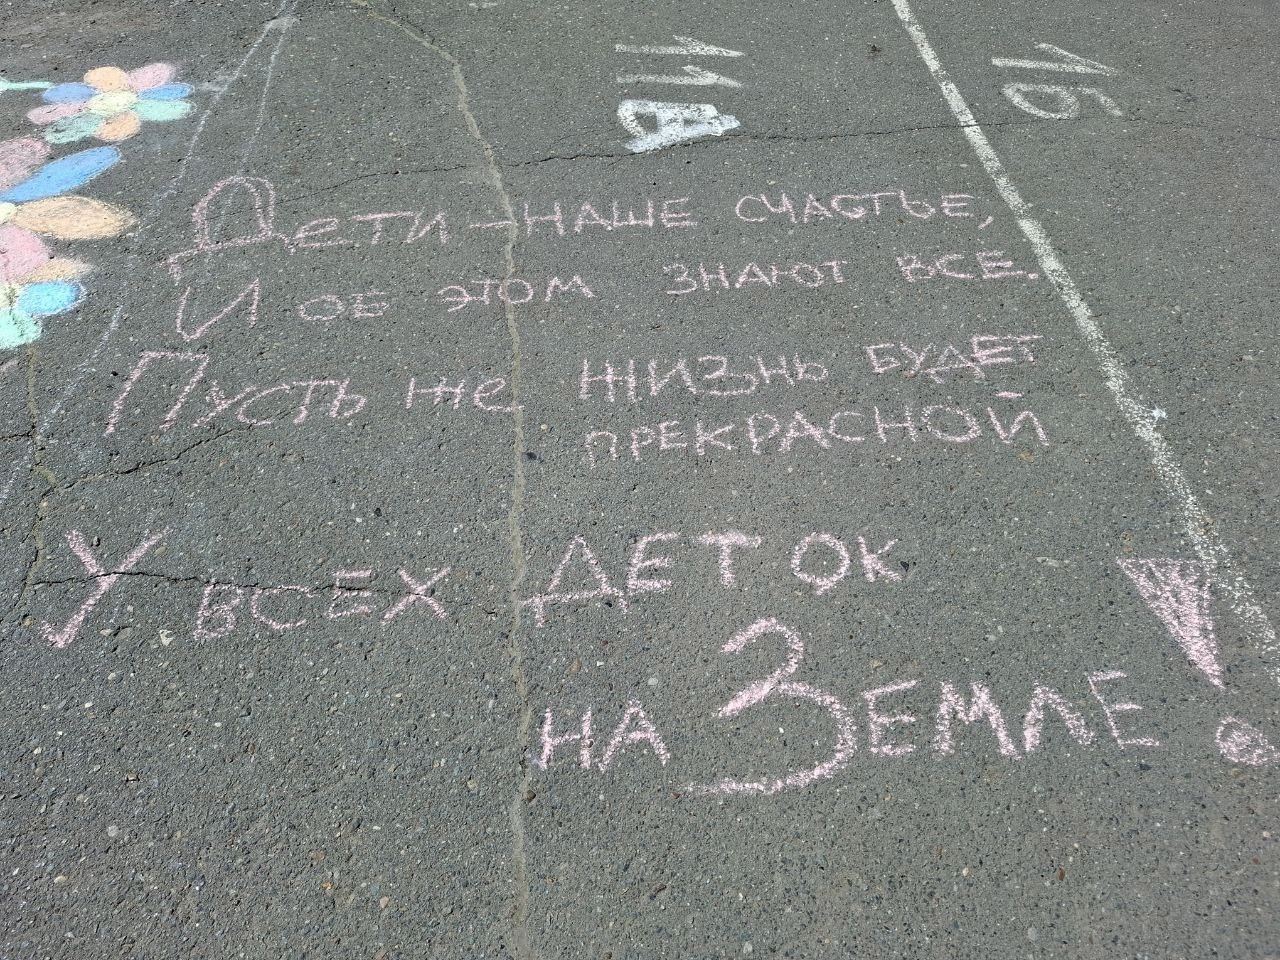 11А
1Б
Дети - НАШЕ СЧАСТЬЕ,
И ОБ ЭТОМ ЗНАЮТ ВСЕ.
Пусть же ЖИЗНЬ БУДЕТ
ПРЕКРАСНОЙ
У ВСЕХ ДЕТОК
НА ЗЕМЛЕ!